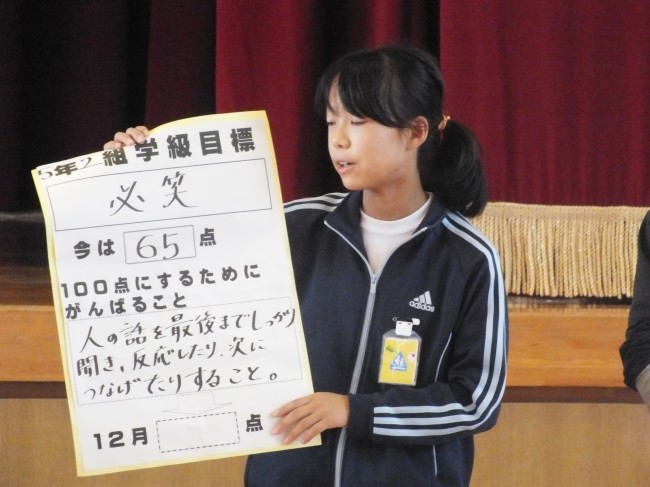 5年2組学級目標
必笑
今は 65 点
100点にするために
がんばること
人の話を最後までしっかり
聞き、反応したり、次に
つなげたりすること。
12月 点
adidas